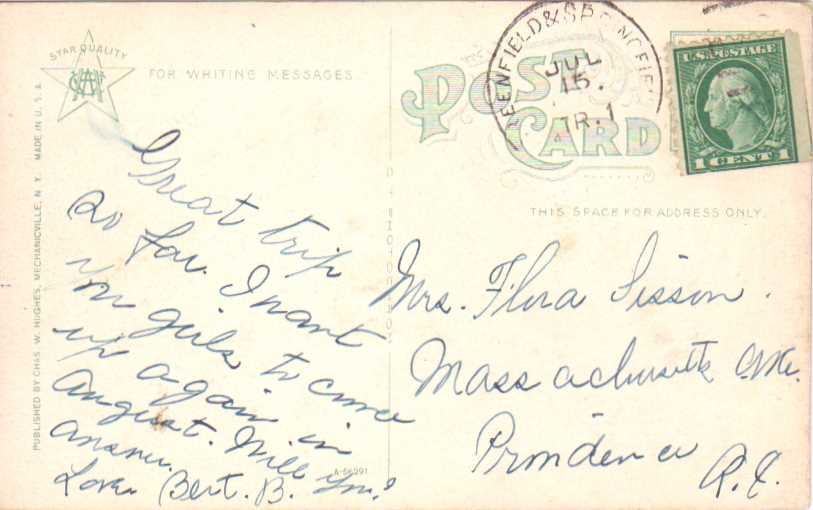 STAR QUALITY
CWH
FOR WRITING MESSAGES
POST
CARD
GREENFIELD & SPRINGFIEL
JUL
15
TR. 1
U.S. POSTAGE
1 CENT 1
THIS SPACE FOR ADDRESS ONLY.
PUBLISHED BY CHAS. W. HUGHES, MECHANICVILLE, N. Y. MADE IN U. S. A.
Great trip
so far. I want
you girls to come
up again in
August. Will you?
Answer.
Love Bert. B.
A-56291
Mrs. Flora Sisson.
Massachusetts Ave.
Providence
R.I.